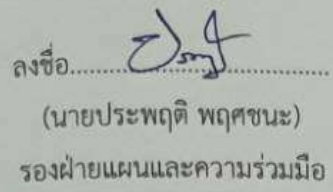 ลงชื่อ......................................
(นายประพฤติ พฤศชนะ)
รองฝ่ายแผนและความร่วมมือ